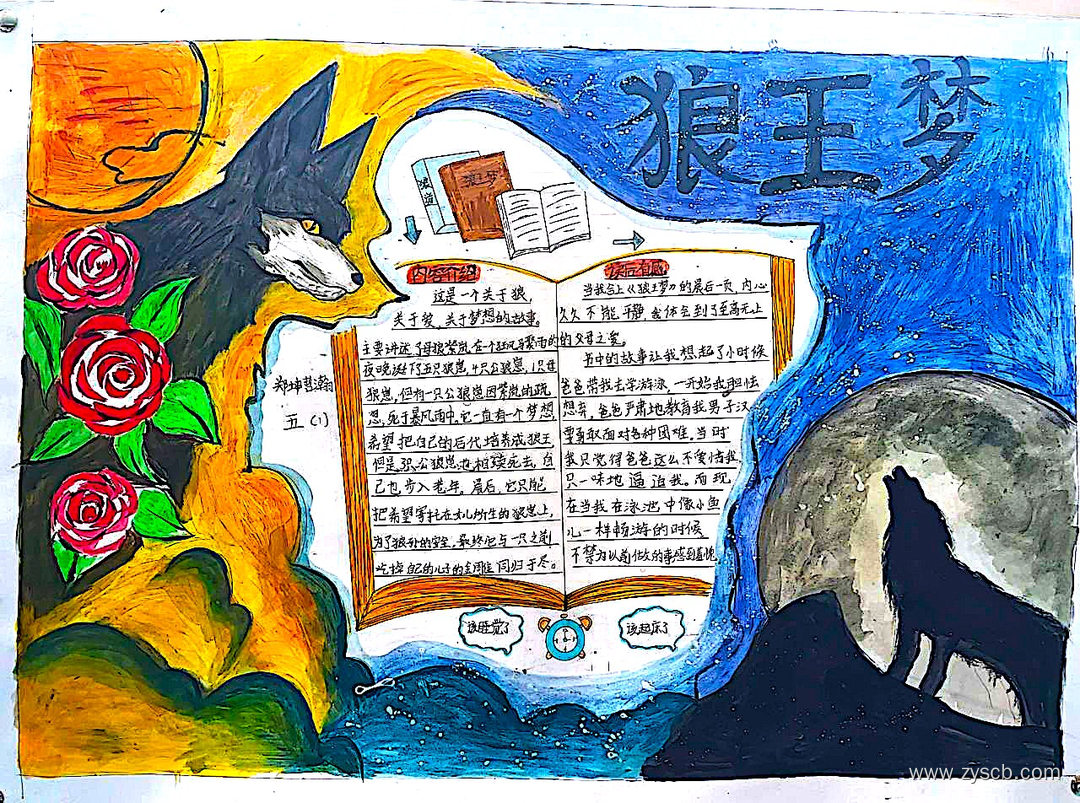 狼王梦
狼道
狼王梦
内容介绍
这是一个关于狼,
关于爱、关于梦想的故事。
主要讲述了母狼紫岚在一个狂风与暴雨的
夜晚诞下了五只狼崽,4只公狼崽,1只母
狼崽,但有一只公狼崽因紫岚的疏
忽,死于暴风雨中,它一直有一个梦想,
希望把自己的后代培养成狼王,
但是 公狼崽 相续死去,自
己也步入老年,最后,它只能
把希望寄托在女儿所生的狼崽上,
为了狼孙的安全,最终它与一只之前
吃掉自己的儿子的金雕 同归于尽。
读后有感
当我合上《狼王梦》的最后一页,内心
久久不能平静,我体会到了至高无上
的父母之爱。
书中的故事让我想起了小时候
爸爸带我去学游泳,一开始我胆怯
想弃,爸爸严肃地教育我男子汉
要勇敢面对各种困难,当时
我只觉得爸爸这么不爱惜我
只一味地逼迫我。而现
在当我在泳池中像小鱼
儿一样畅游的时候
不禁为以前做的事感到羞愧
郑坤慧瀚
五(1)
该睡觉了
该起床了
www.zyscb.com